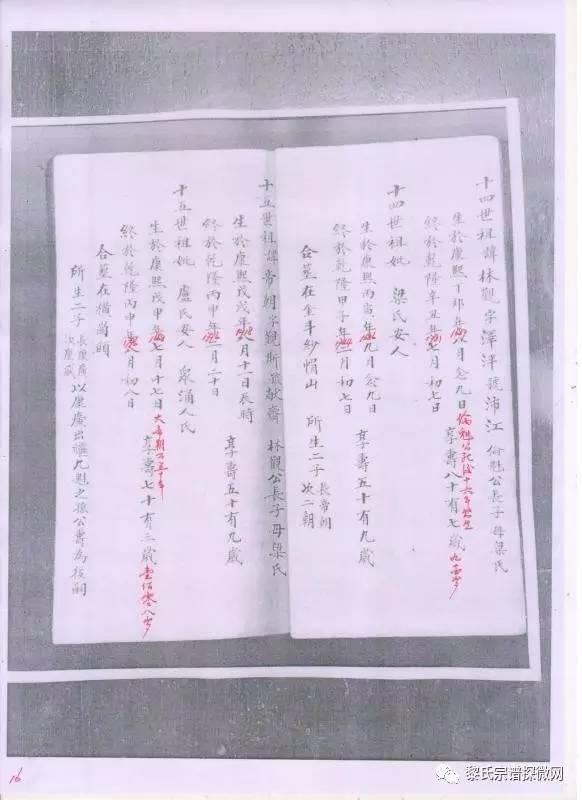 十四世祖諱林觀字澤洋號沛江 倫魁公長子母梁氏
生於康熙丁卯年 月念九日 倫魁公死後十六年出生
終於乾隆辛丑年七月初七日 享壽八十有七歲
十四世祖妣 梁氏安人
生於康熙丙寅年九月念九日 享壽五十有九歲
終於乾隆甲子年 月初七日
合墓在金斗紗帽山 所生二子 長帝朝 次二朝
十五世祖諱帝朝字覲斯號献齋 林觀公長子母梁氏
生於康熙戊戌年八月十一日辰時 享壽五十有九歲
終於乾隆丙申年 月二十日
十五世祖妣 盧氏安人 泉涌人氏
生於康熙戊申年七月十七日 大帝朝公五十年 享壽七十有三歲 壹佰零八岁
終於乾隆丙申年八月初八日
合墓在橫崗頭
所生二子 長康廣 次康 以康廣出繼九魁之孫公壽為後嗣
16
黎氏宗谱探微网